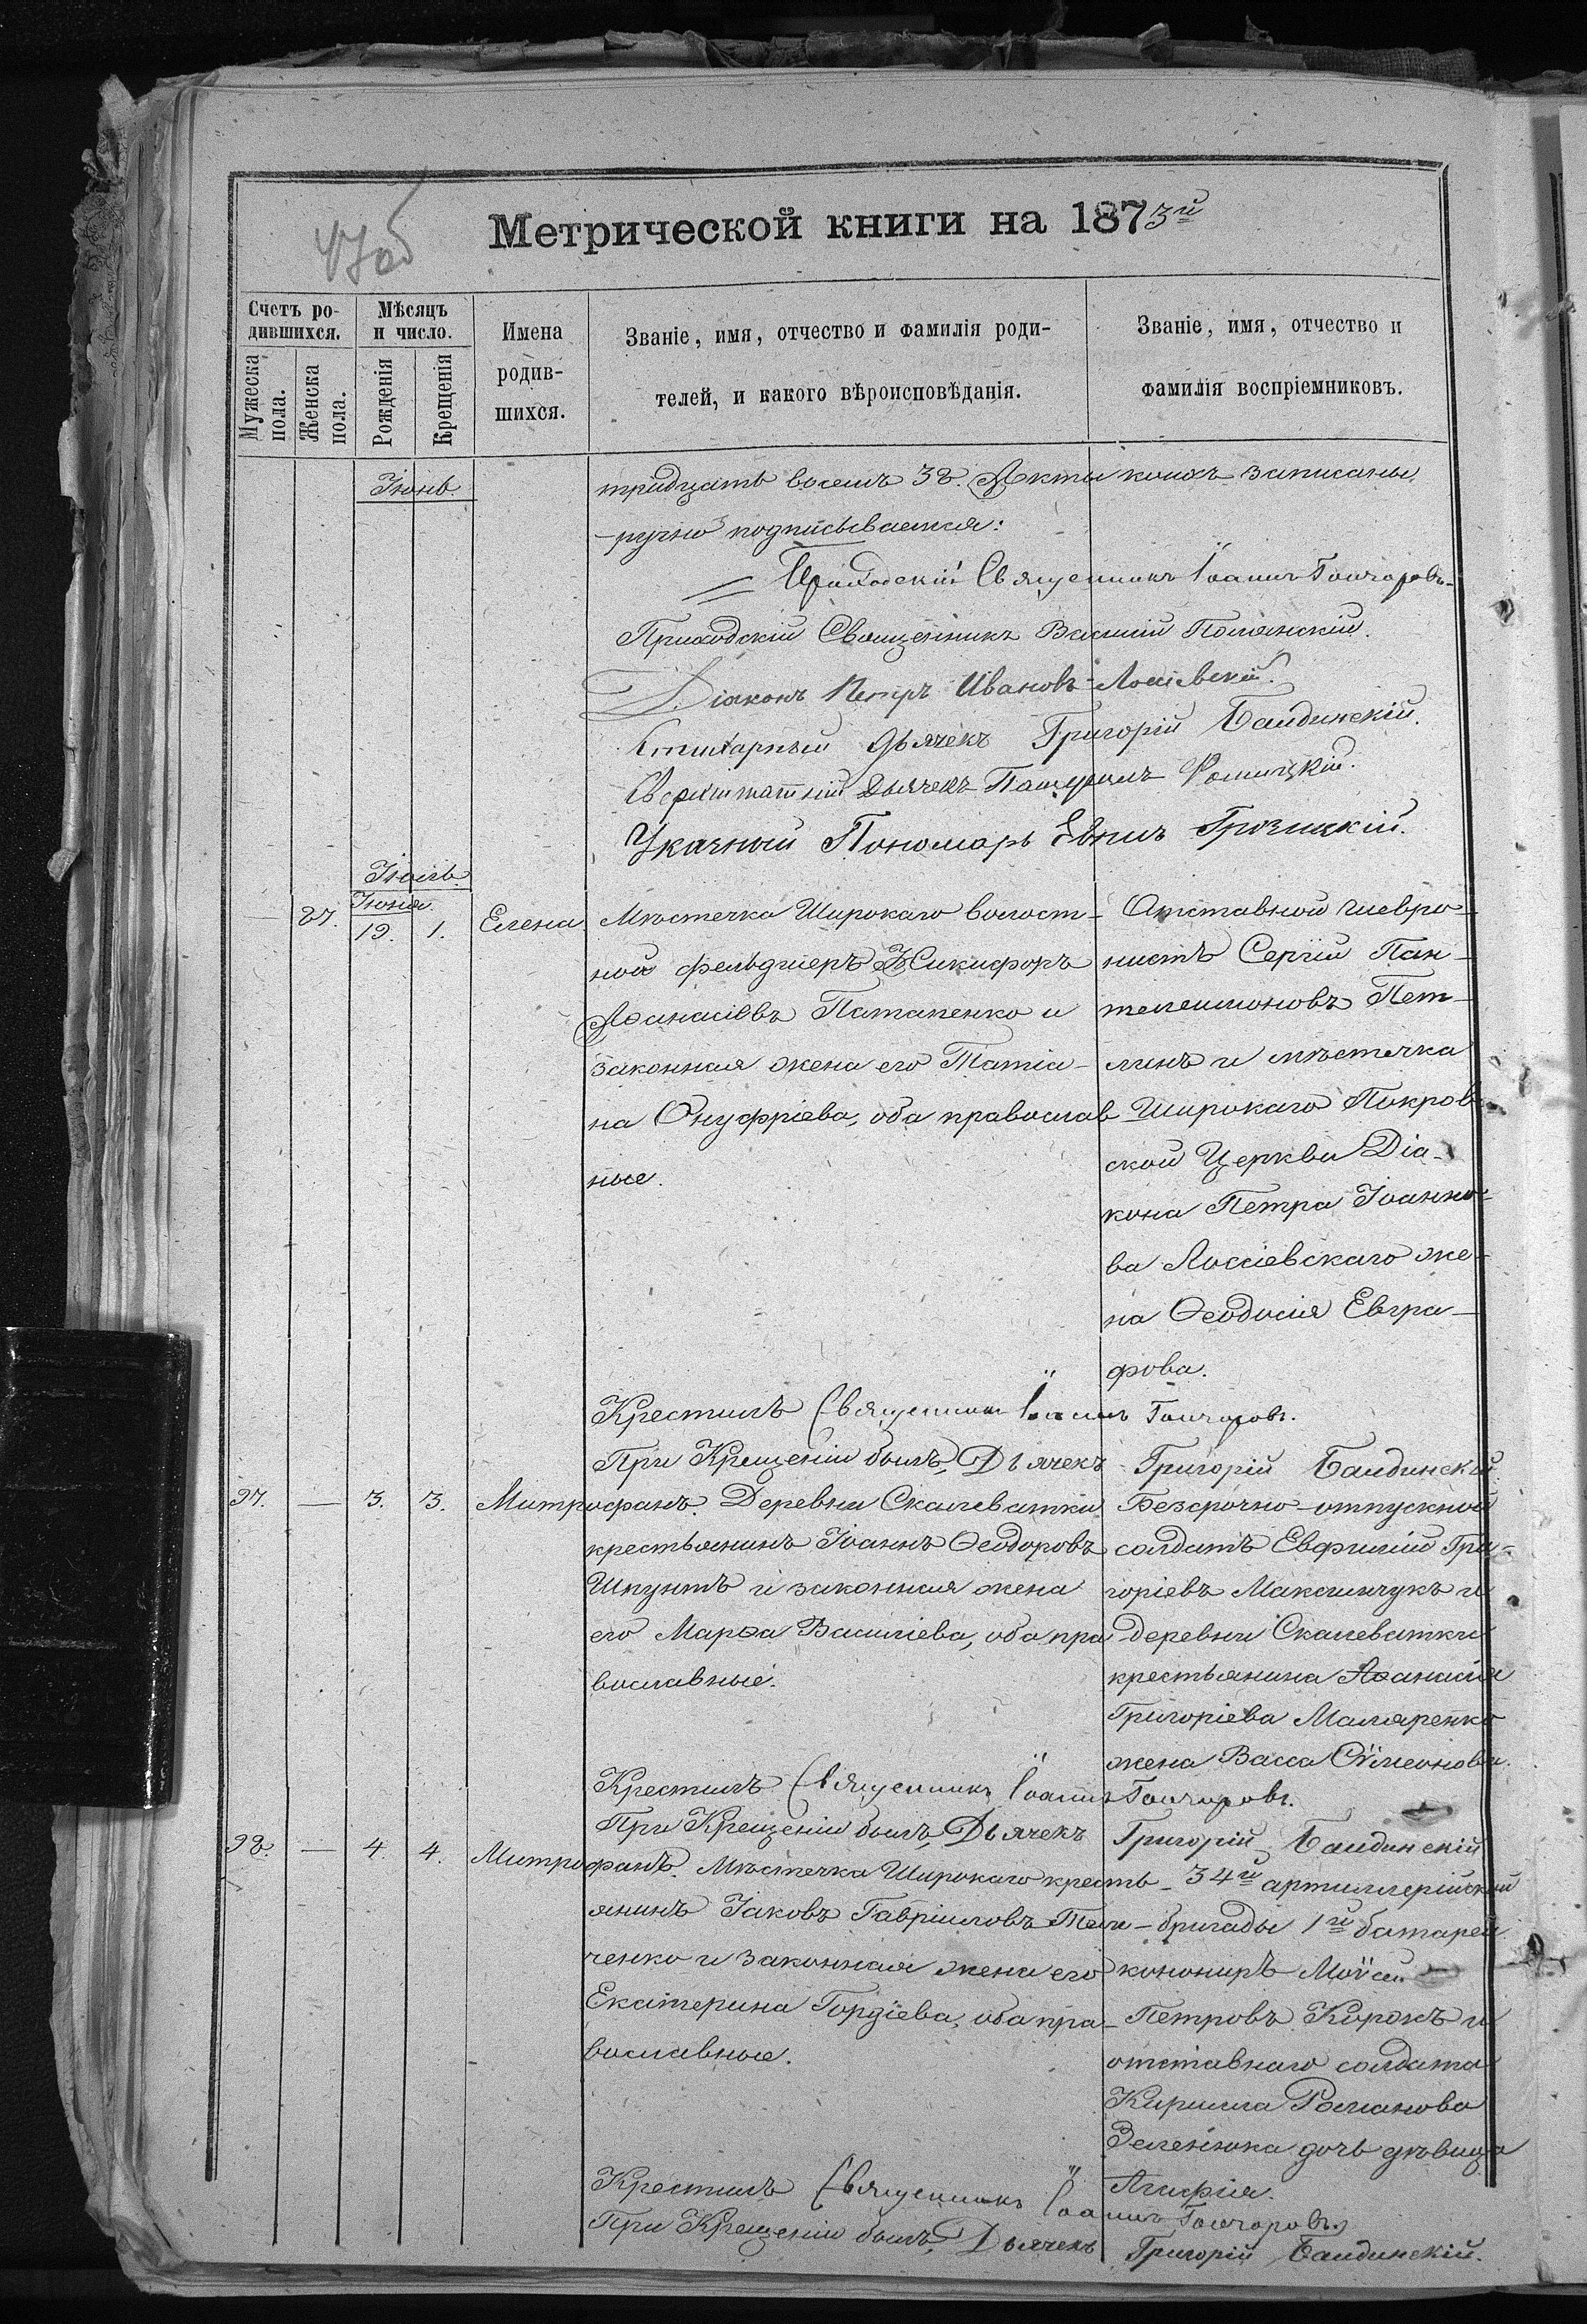 47об
Метрической книги на 1873й
Счетъ родившихся.
Мужеска пола.
Женска пола.
Мѣсяцъ и число.
Рожденія
Крещенія
Имена родившихся.
Званіе, имя, отчество и фамилія родителей, и какого вѣроисповѣданія.
Званіе, имя, отчество и фамилія воспріемниковъ.
Іюнь
тридцать восемь 38. Акты коихъ записаны,
-ручно подписываемся:
Приходскій Священникъ Іоаннъ Гончаровъ
Приходскій Священникъ Василій Полянскій.
Діаконъ Петръ Ивановъ Лоссіевскій.
Стихарный Дьячекъ Григорій Бандинскій.
Сверхштатній Дьячекъ
Указный Пономарь
Іюль
87. Іюня 19. 1. Елена
Мѣстечка Широкаго волост-
ной фельдшеръ Никифоръ
Аѳанасіевъ Патапенко и
законная жена его Татіа-
на Онуфріева, оба православ
ные.
Отставной шевро-
нистъ Сергій Пан-
телеимоновъ Пет-
линъ и мѣстечка
Широкаго Покров-
ской Церкви Діа-
кона Петра Іоанно-
ва Лоссіевскаго же-
на Ѳеодосія Евгра-
фова.
Крестилъ Священникъ Іоаннъ Гончаровъ.
При Крещеніи былъ, Дьячекъ Григорій Бандинскій
97. — 3. 3. Митрофанъ.
Деревни Скалеватки
крестьянинъ Іоаннъ Ѳеодоровъ
Шпунтъ и законная жена
его Марѳа Василіева, оба пра
вославные.
Безсрочно-отпускной
солдатъ Евфимій Гри-
горіевъ Максимчукъ и
деревни Скалеватки
крестьянина Аѳанасія
Григоріева Маляренко
жена Васса Сѵмеонова.
Крестилъ Священникъ Іоаннъ Гончаровъ.
При Крещеніи былъ, Дьячекъ Григорій Бандинскій
98. — 4. 4. Митрофанъ.
Мѣстечка Широкаго кресть-
янинъ Іаковъ Гавріиловъ Тели-
ченко и законная жена его
Екатерина Гордіева, оба пра-
вославные.
34й артиллерійской
бригады 1й батареи
конониръ Моѵсей
Петровъ Корокъ и
отставнаго солдата
Кирилла Романова
Зеленюка дочь дѣвица
Агафія.
Крестилъ Священникъ Іоаннъ Гончаровъ.
При Крещеніи былъ, Дьячекъ Григорій Бандинскій.